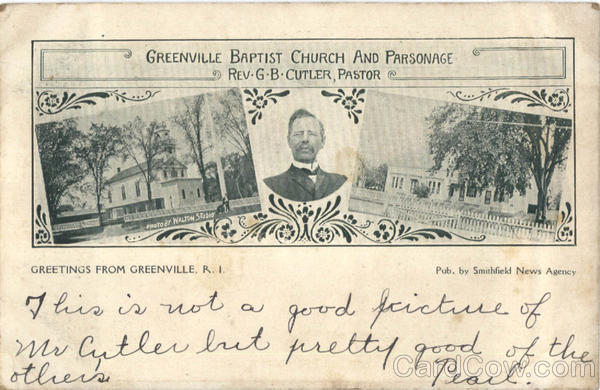 GREENVILLE BAPTIST CHURCH AND PARSONAGE
REV. G. B. CUTLER, PASTOR
PHOTO BY WALTON STUDIO
GREETINGS FROM GREENVILLE, R. I.
PUB. BY SMITHFIELD NEWS AGENCY
This is not a good picture of
Mr Cutler but pretty good of the
others. Pearl.
CardCow.com